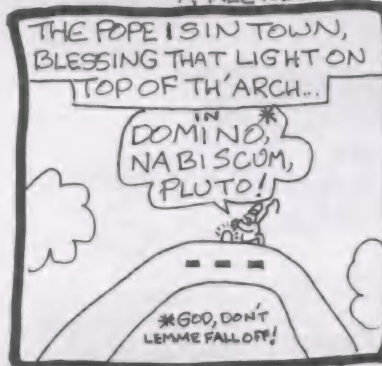 THE POPE IS IN TOWN,
BLESSING THAT LIGHT ON
TOP OF TH' ARCH...
IN *
DOMINO,
NABISCUM,
PLUTO!
*GOD, DON'T
LEMME FALL OFF!